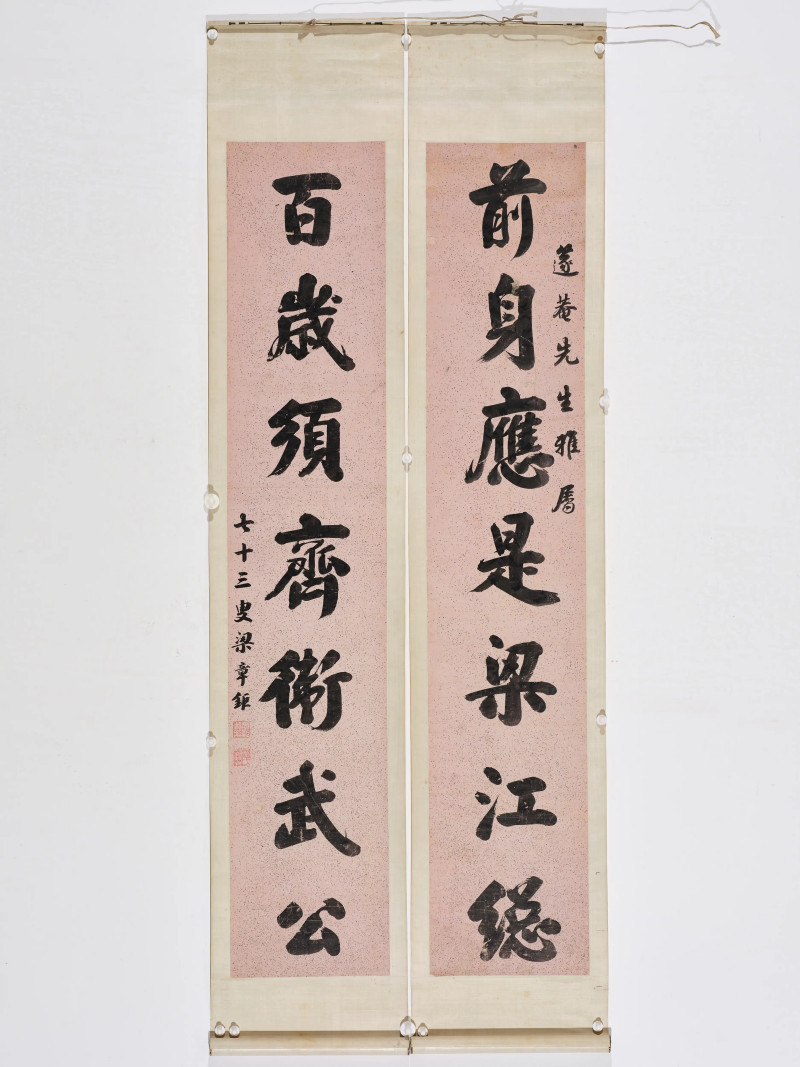 蓬菴先生雅屬
前身應是梁江總
百歲須齊衛武公
七十三叟梁章鉅